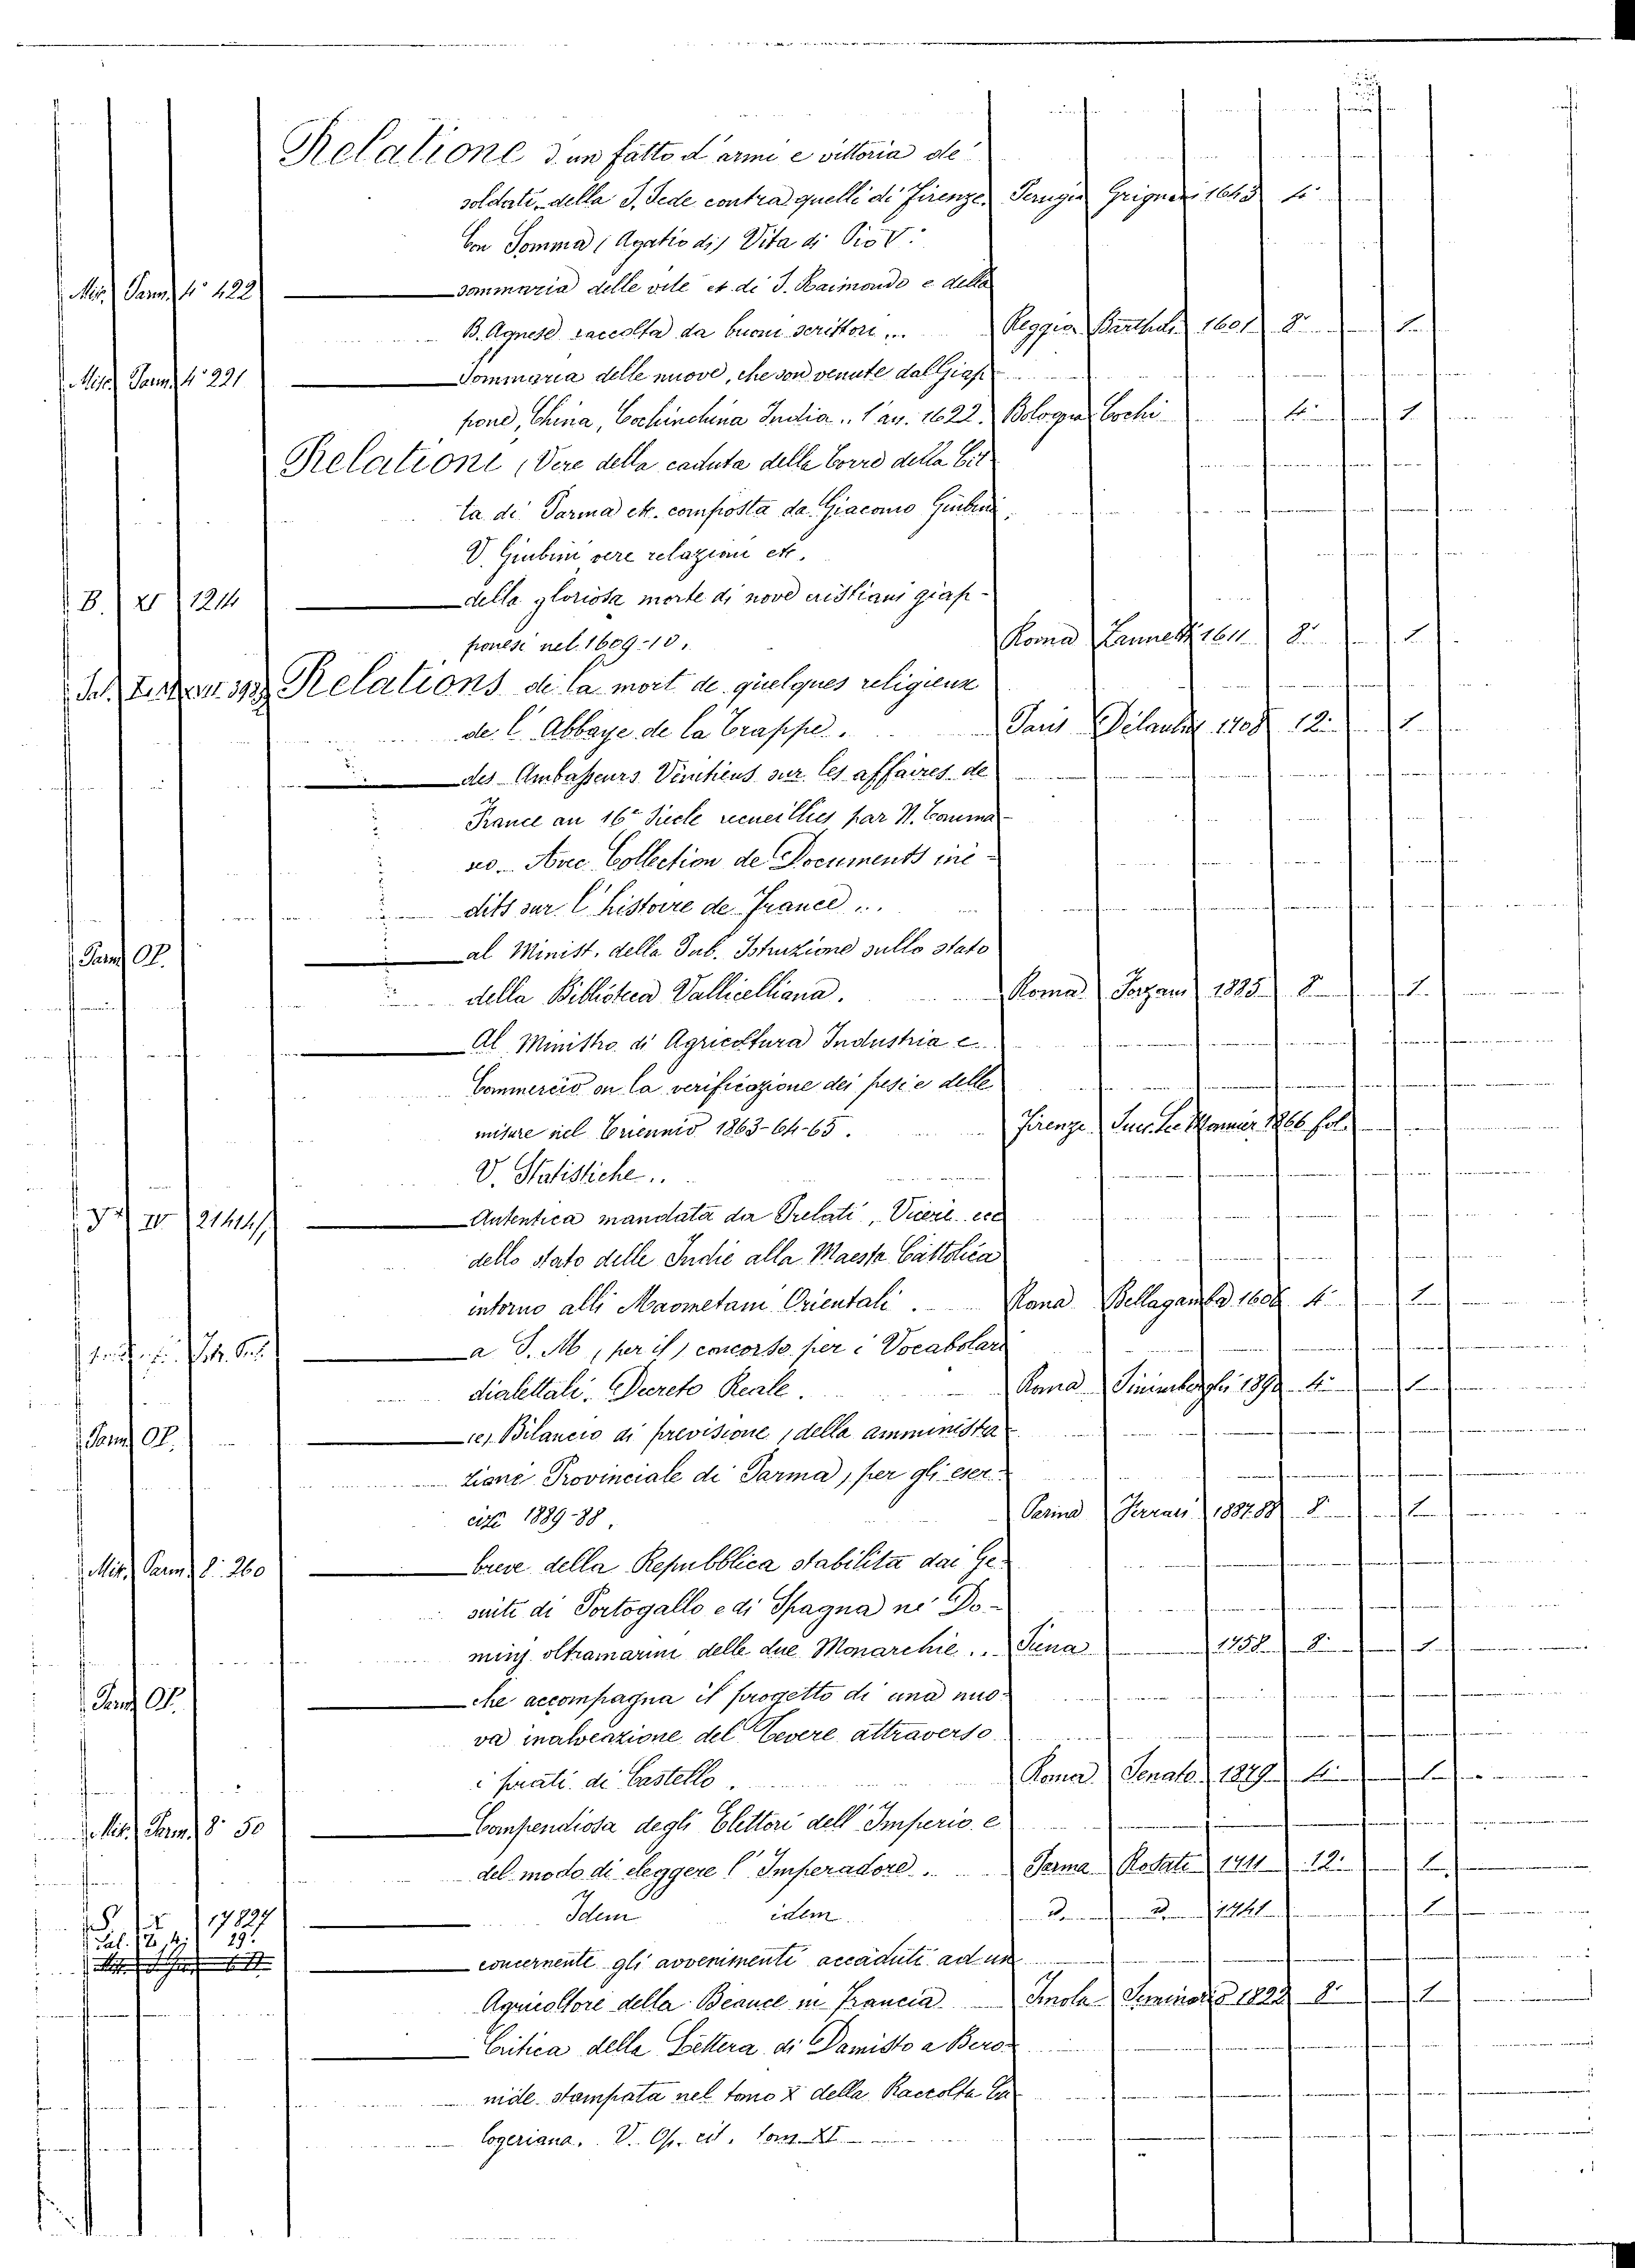 Relatione d'un fatto d'armi e vittoria de'
soldati della S. Sede contra quelli di Firenze. Perugia Grignani 1643 4°
Con Somma (Agatio di) Vita di Pio V.
Misc. Parm. 4° 422 — sommaria delle vite et. di S. Raimondo e della
B. Agnese raccolta da buoni scrittori ... Reggio Bartholi 1601 8° 1
Misc. Parm. 4° 221 — Sommaria delle nuove, che son venute dal Giap
pone, China, Cochinchina India .. l'an. 1622. Bologna Cochi 4° 1
Relationi (Vere della caduta delle torre della Cit
ta di Parma etc. composta da Giacomo Giubini
V. Giubini vere relazioni etc.
B. XI 1214 — della gloriosa morte di nove cristiani giap-
ponesi nel 1609-10. Roma Zannetti 1611 8° 1
Relations de la mort de quelques religieux
de l'Abbaye de la Trappe. Paris 12° 1
— des Ambasseurs Vénitiens sur les affaires de
France au 16e Siècle recueillies par N. Tomma-
seo. Avec Collection de Documents iné-
dits sur l'histoire de France ...
Parm. Op. — al Minist. della Pub. Istruzione sullo stato
della Biblioteca Vallicelliana. Roma Forzani 1885 8° 1.
— Al Ministro di Agricoltura Industria e
Commercio on la verificazione dei pesi e delle
misure nel Triennio 1863-64-65. Firenze Succ. Le Monnier 1866 fol.
V. Statistiche ..
IV 21414 — Autentica mandata da Prelati, Vicerè ecc
dello stato delle Indie alla Maestà Cattolica
intorno alli Maometani Orientali. Roma Bellagamba 1606 4° 1
— a S. M. (per il) concorso per i Vocabolari
dialettali. Decreto Reale. Roma Sinimberghi 189 4° 1
Parm. Op. — (e) Bilancio di previsione, della amministra
zione Provinciale di Parma, per gli eser-
cizi 1889-88. Parma Ferrari 1887.88 8° 1
Misc. Parm. 8° 260 — breve della Repubblica stabilita dai Ge-
suiti di Portogallo e di Spagna ne' Do-
minj oltramarini delle due Monarchie ... 1758 8° 1
Parm. Op. — che accompagna il progetto di una nuo-
va inalveazione del Tevere attraverso
i prati di Castello. Roma Senato 1879 4° 1
Misc. Parm. 8° 50 — Compendiosa degli Elettori dell'Imperio e
del modo di eleggere l'Imperadore. Parma Rosati 1711 12° 1
17827 — Idem idem D. D. 1741 1
Pal.
— concernente gli avvenimenti accaduti ad un
Agricoltore della Beauce in Francia Imola Seminario 1822 8° 1
— Critica della Lettera di Damisto a Bero-
nide stampata nel tomo X della Raccolta Ca
logeriana. V. Op. cit. Tom. XI